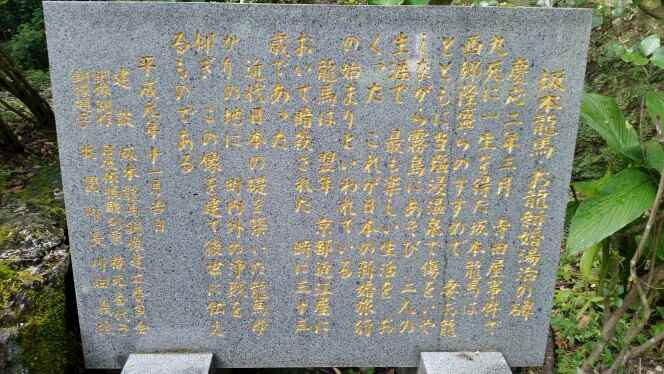 坂本龍馬・お龍新婚湯治の碑
慶応二年三月　寺田屋事件で
九死に一生を得た坂本龍馬は
西郷隆盛らのすすめで　妻お龍
とともに当塩浸温泉で傷をいや
しながら霧島にあそび　二人の
生涯で　最も楽しい生活を　お
くった　これが日本の新婚旅行
の始まりといわれている
龍馬は　翌年　京都近江屋に
おいて暗殺された　時に三十三
歳であった
近代日本の礎を築いた龍馬ゆ
かりの地に　町内外の浄財を
仰ぎ　この像を建て後世に伝え
るものである
平成元年十一月吉日
建設　坂本龍馬